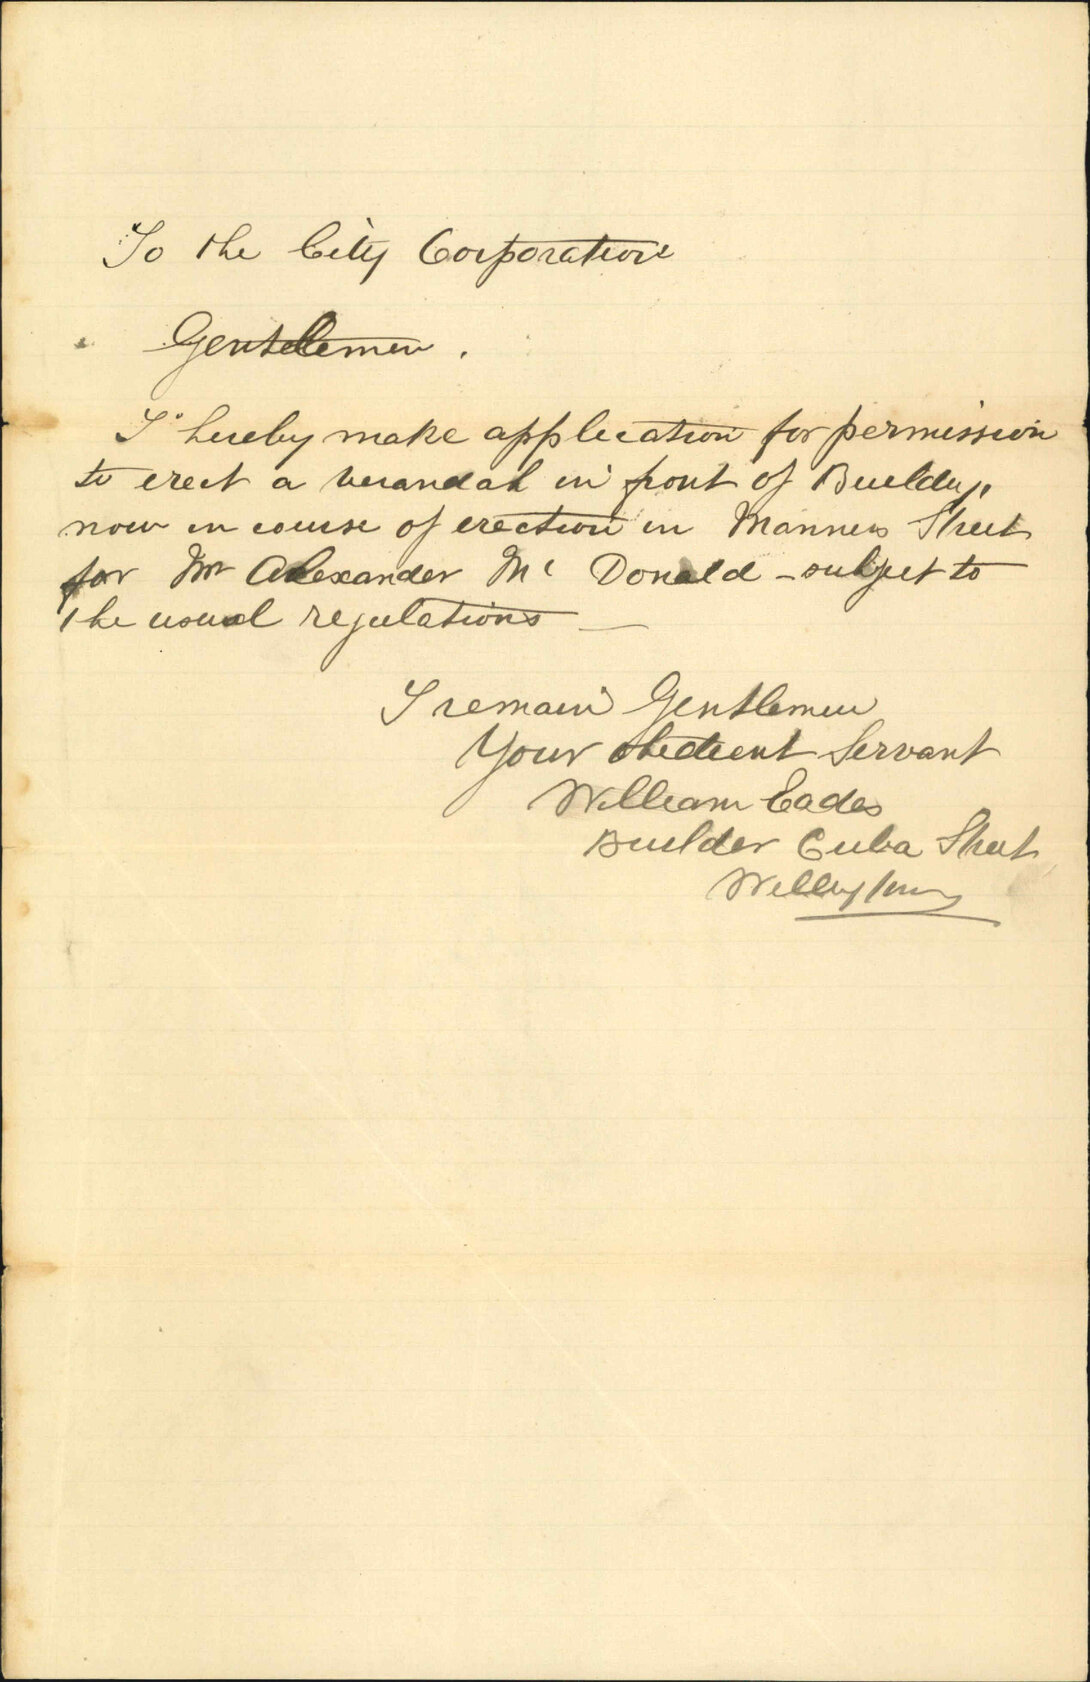 To the City Corporation
Gentlemen.
I hereby make application for permission
to erect a verandah in front of Building
now in course of erection in Manners Street
for Mr Alexander Mc Donald - subject to
the usual regulations —
I remain Gentlemen
Your obedient Servant
William Eades
Builder Cuba Street
Wellington